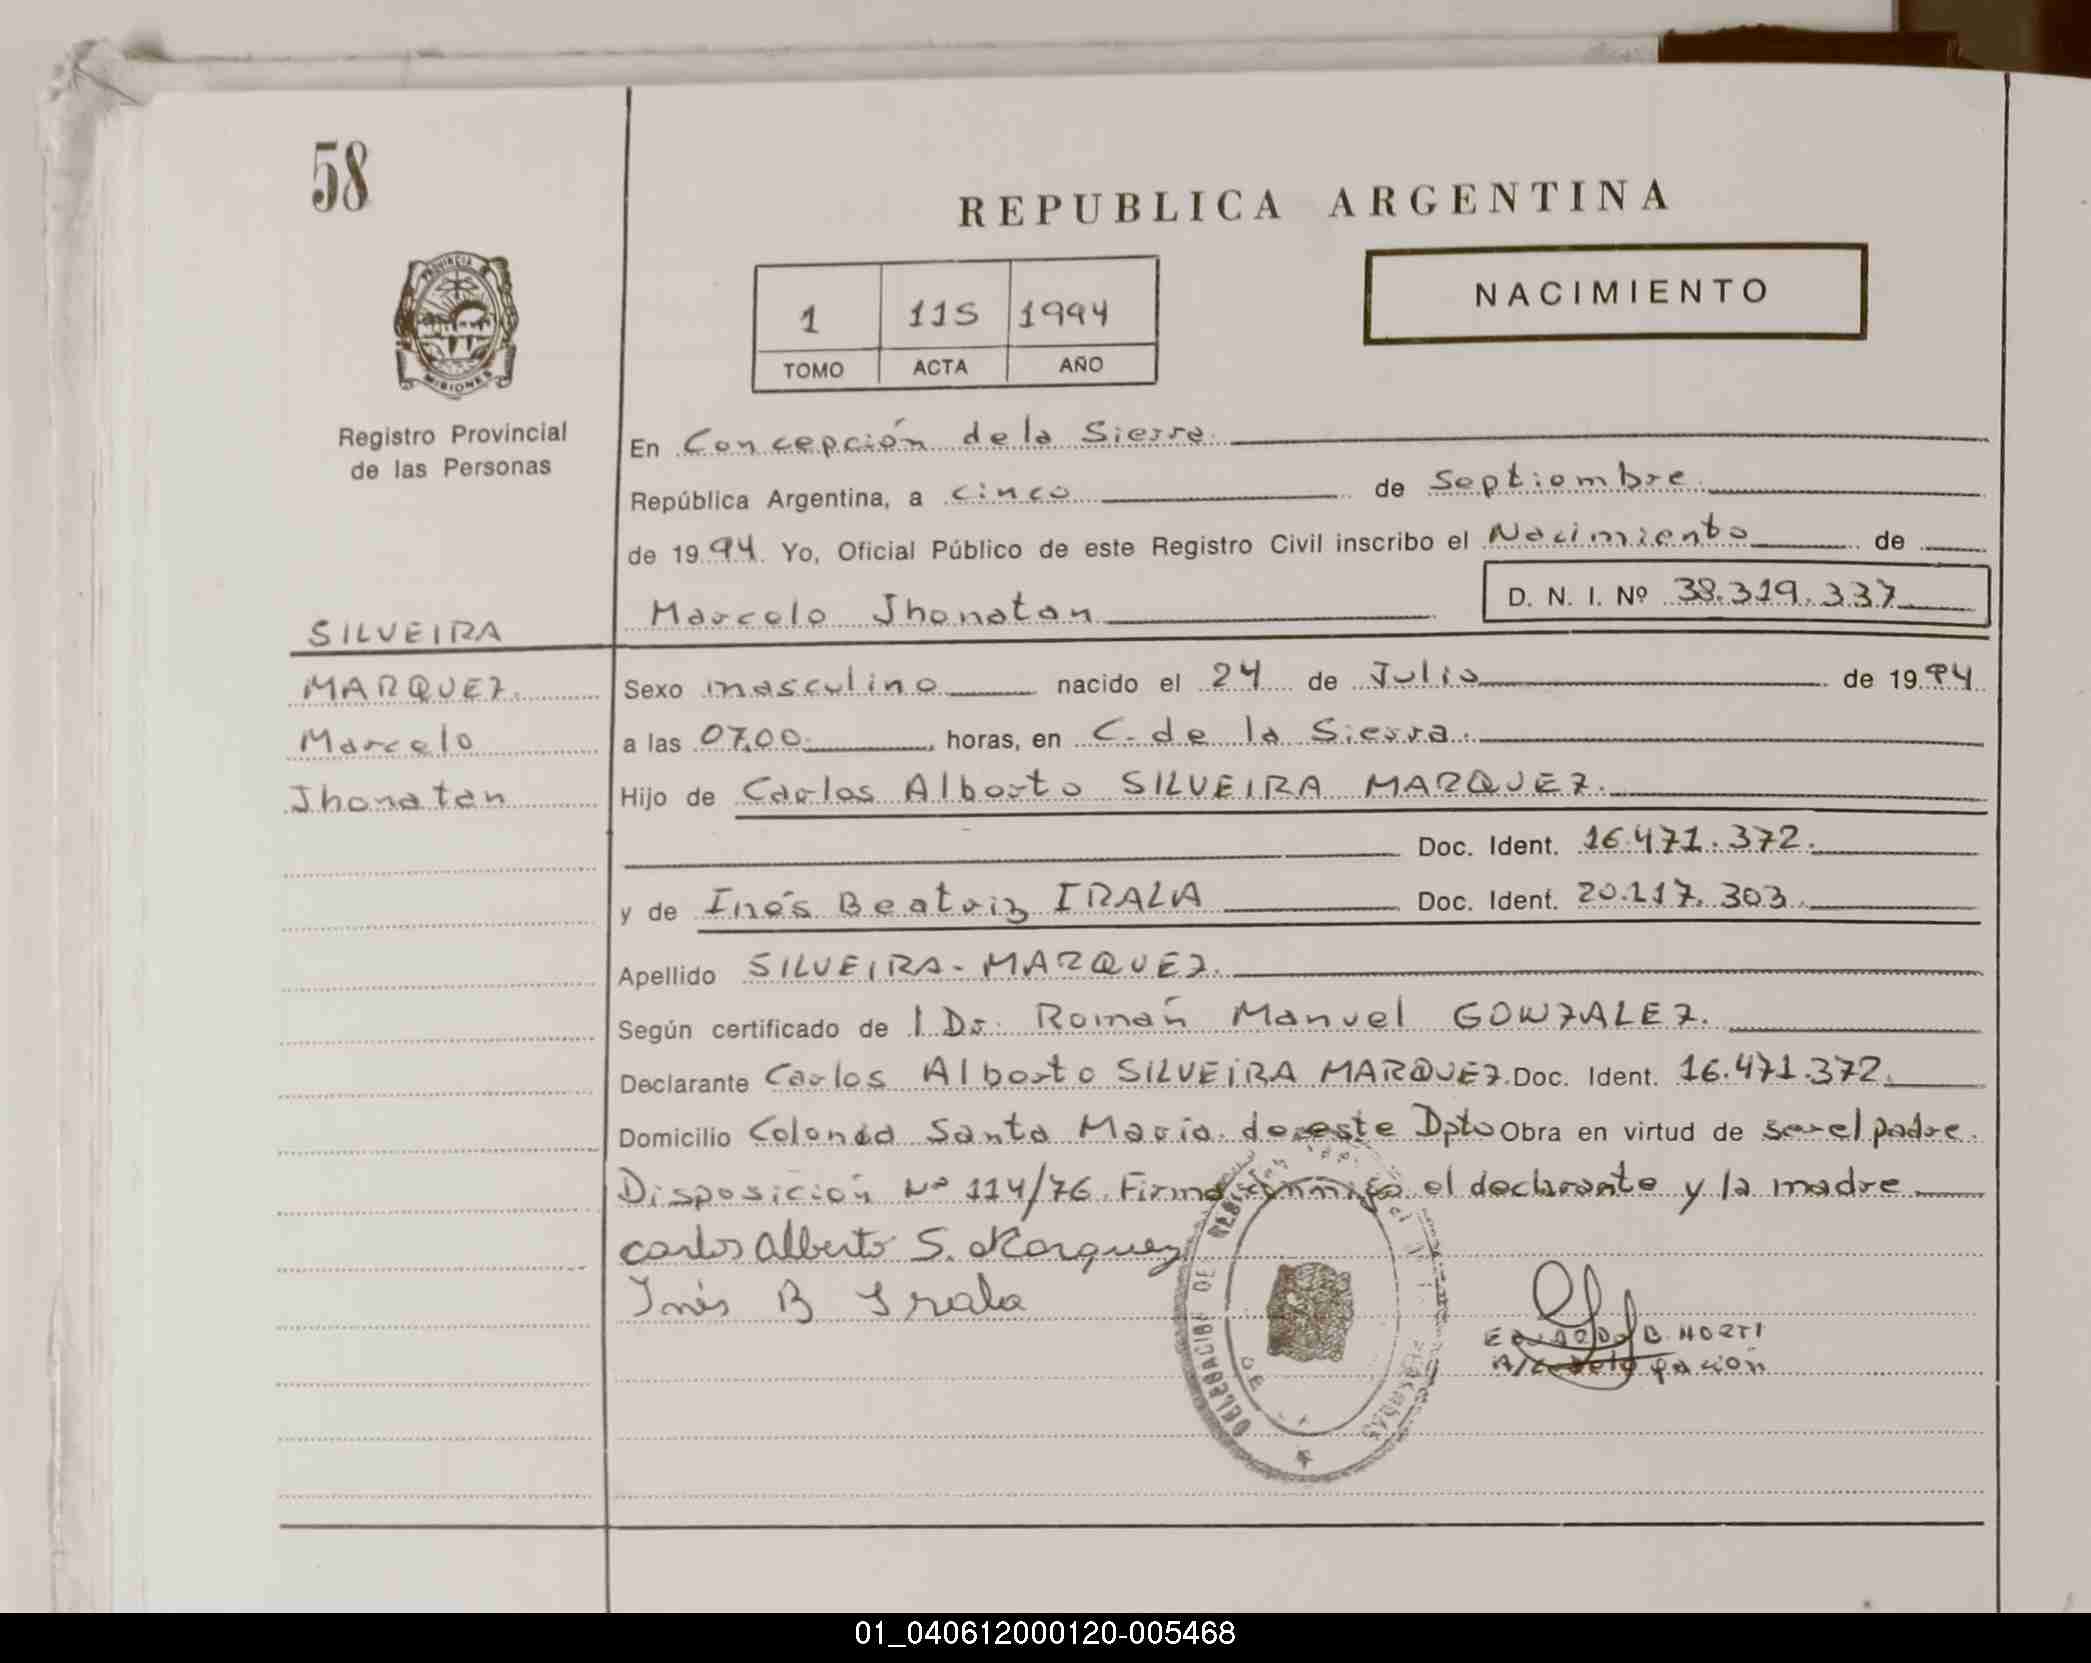 58
REPUBLICA ARGENTINA
PROVINCIA DE
MISIONES
NACIMIENTO
1 115 1994
TOMO ACTA AÑO
Registro Provincial
de las Personas
En Concepción de la Sierra
República Argentina, a cinco de Septiembre
de 1994. Yo, Oficial Público de este Registro Civil inscribo el Nacimiento de
Marcelo Jhonatan D. N. I. Nº 38.319.337
SILVEIRA
MARQUEZ
Marcelo
Jhonatan
Sexo masculino nacido el 24 de Julio de 1994
a las 07,00 horas, en C. de la Sierra.
Hijo de Carlos Alberto SILVEIRA MARQUEZ.
Doc. Ident. 16.471.372.
y de Inés Beatriz IRALA Doc. Ident. 20.117.303.
Apellido SILVEIRA-MARQUEZ.
Según certificado de l Dr. Román Manuel GONZALEZ.
Declarante Carlos Alberto SILVEIRA MARQUEZ. Doc. Ident. 16.471.372.
Domicilio Colonia Santa María de este Dpto Obra en virtud de ser el padre.
Disposición Nº 114/76. Firma conmigo el declarante y la madre
Carlos Alberto S. Marquez
Inés B Irala
DELEGACION DE
DE
A/C Delegación
01_040612000120-005468